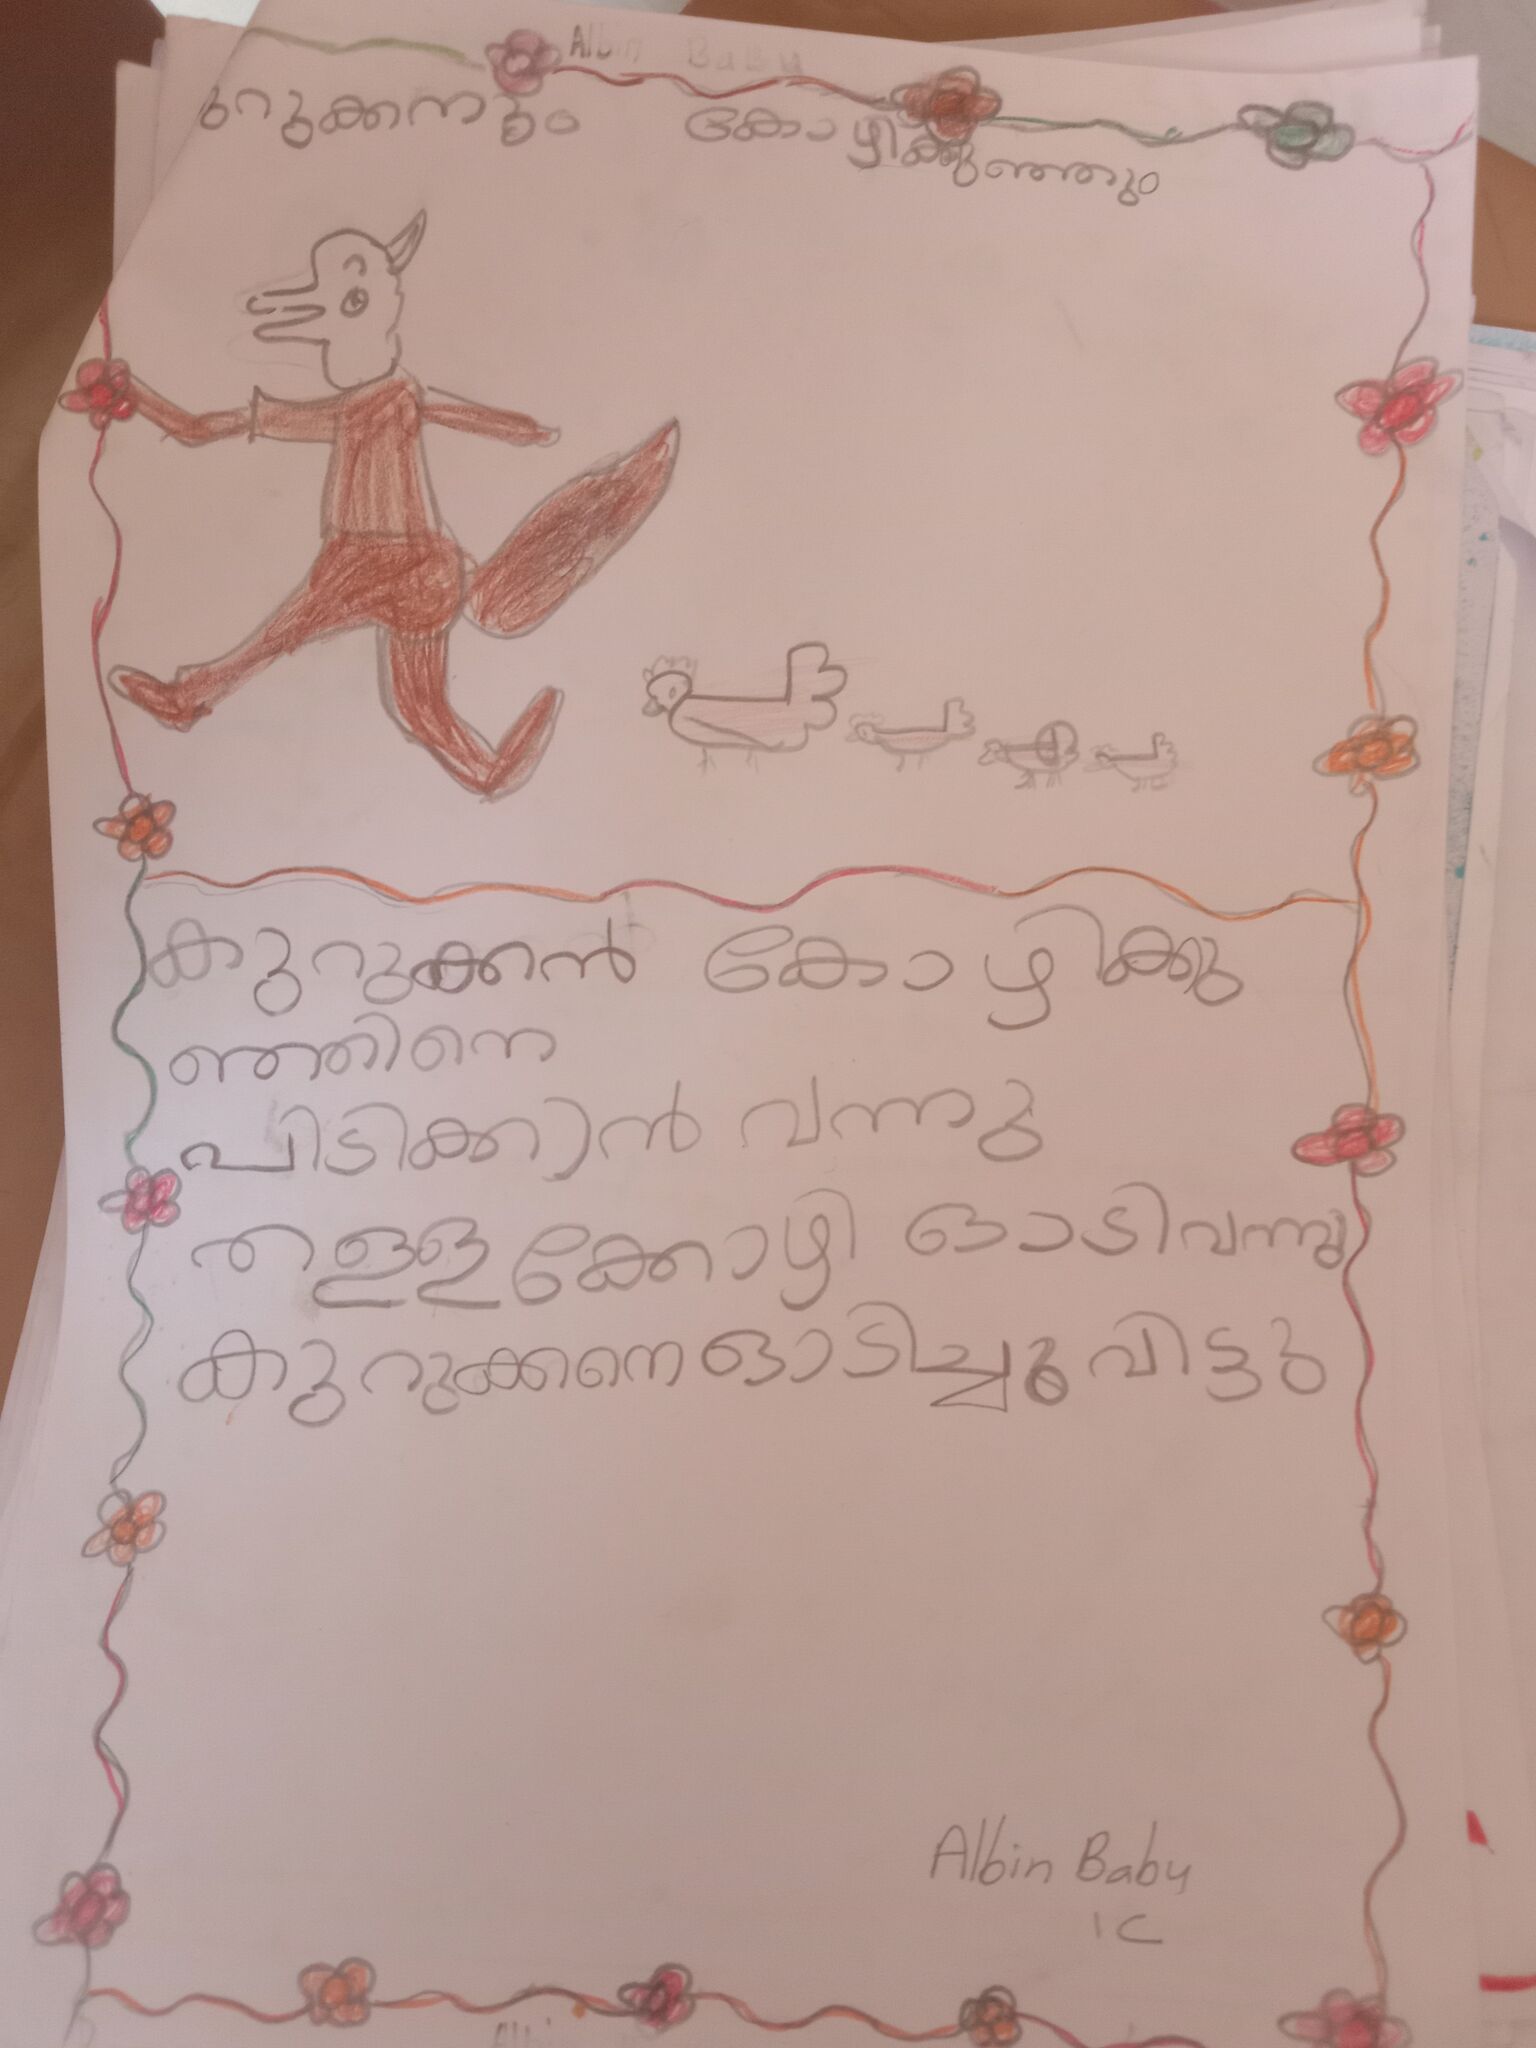 Albin Baby
കുറുക്കനും കോഴിക്കുഞ്ഞും
കുറുക്കൻ കോഴിക്കു
ഞ്ഞിനെ
പിടിക്കാൻ വന്നു
തള്ളക്കോഴി ഓടിവന്നു
കുറുക്കനെ ഓടിച്ചു വിട്ടു
Albin Baby
1 C
Albi